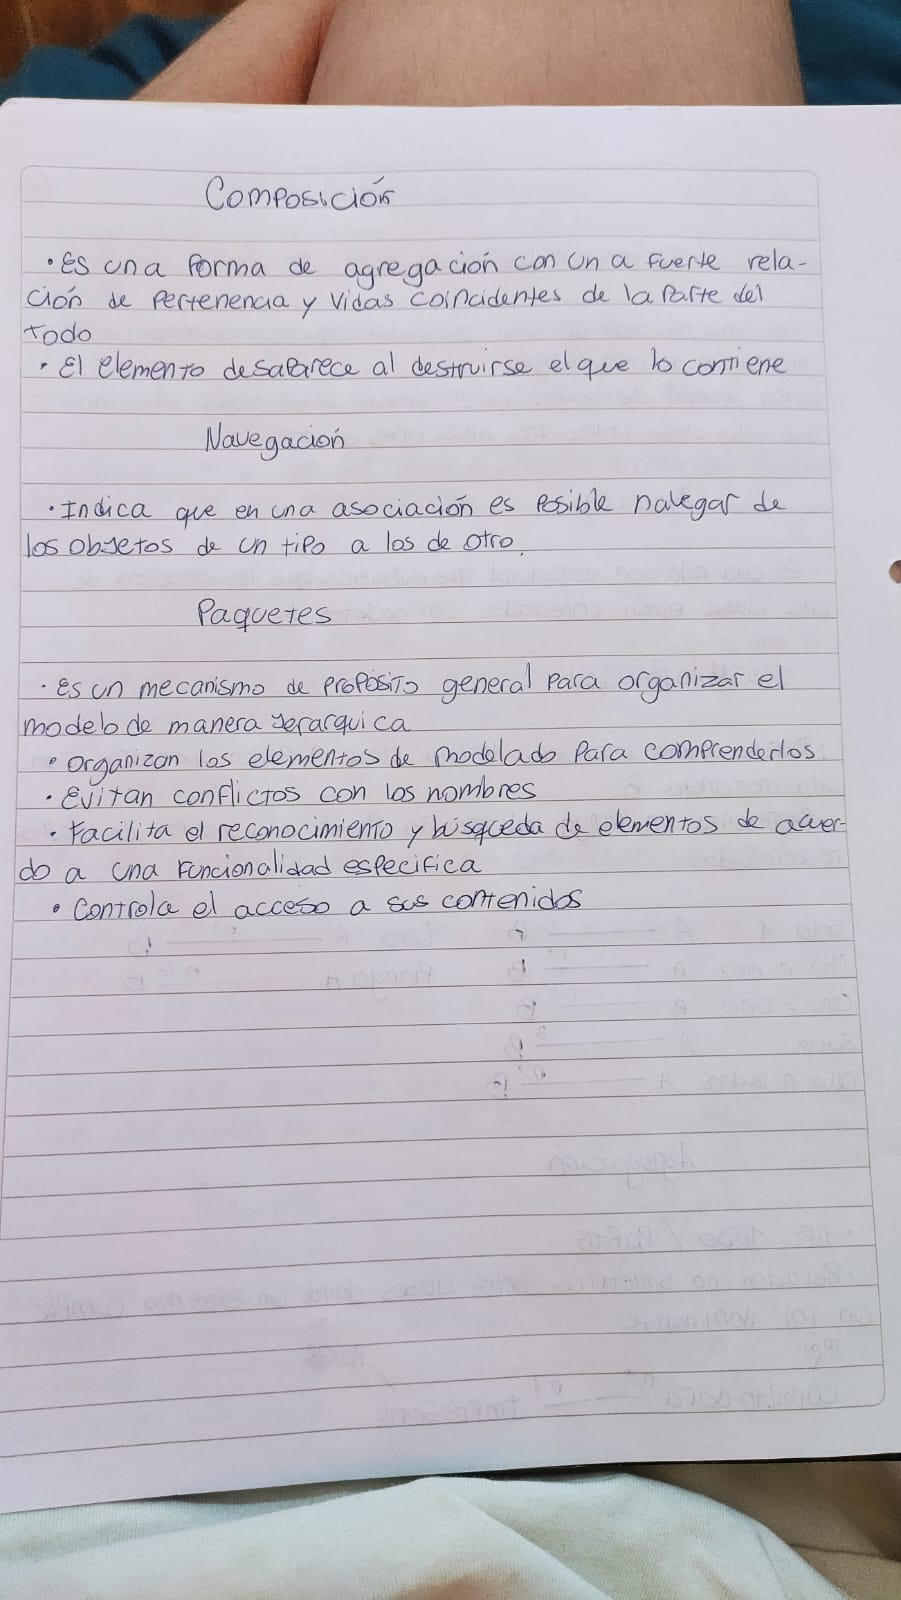 Composición
• Es una forma de agregación con una fuerte rela-
ción de Pertenencia y Vidas Coincidentes de la Parte del
Todo
• El elemento desaparece al destruirse el que lo contiene
Navegación
• Indica que en una asociación es Posible navegar de
los objetos de un tipo a los de otro.
Paquetes
• es un mecanismo de proposito general para organizar el
modelo de manera jerarquica
• organizan los elementos de modelado Para comprenderlos.
• Evitan conflictos con los nombres
• Facilita el reconocimiento y búsqueda de elementos de acuer-
do a una Funcionalidad especifica
• Controla el acceso a sus contenidos